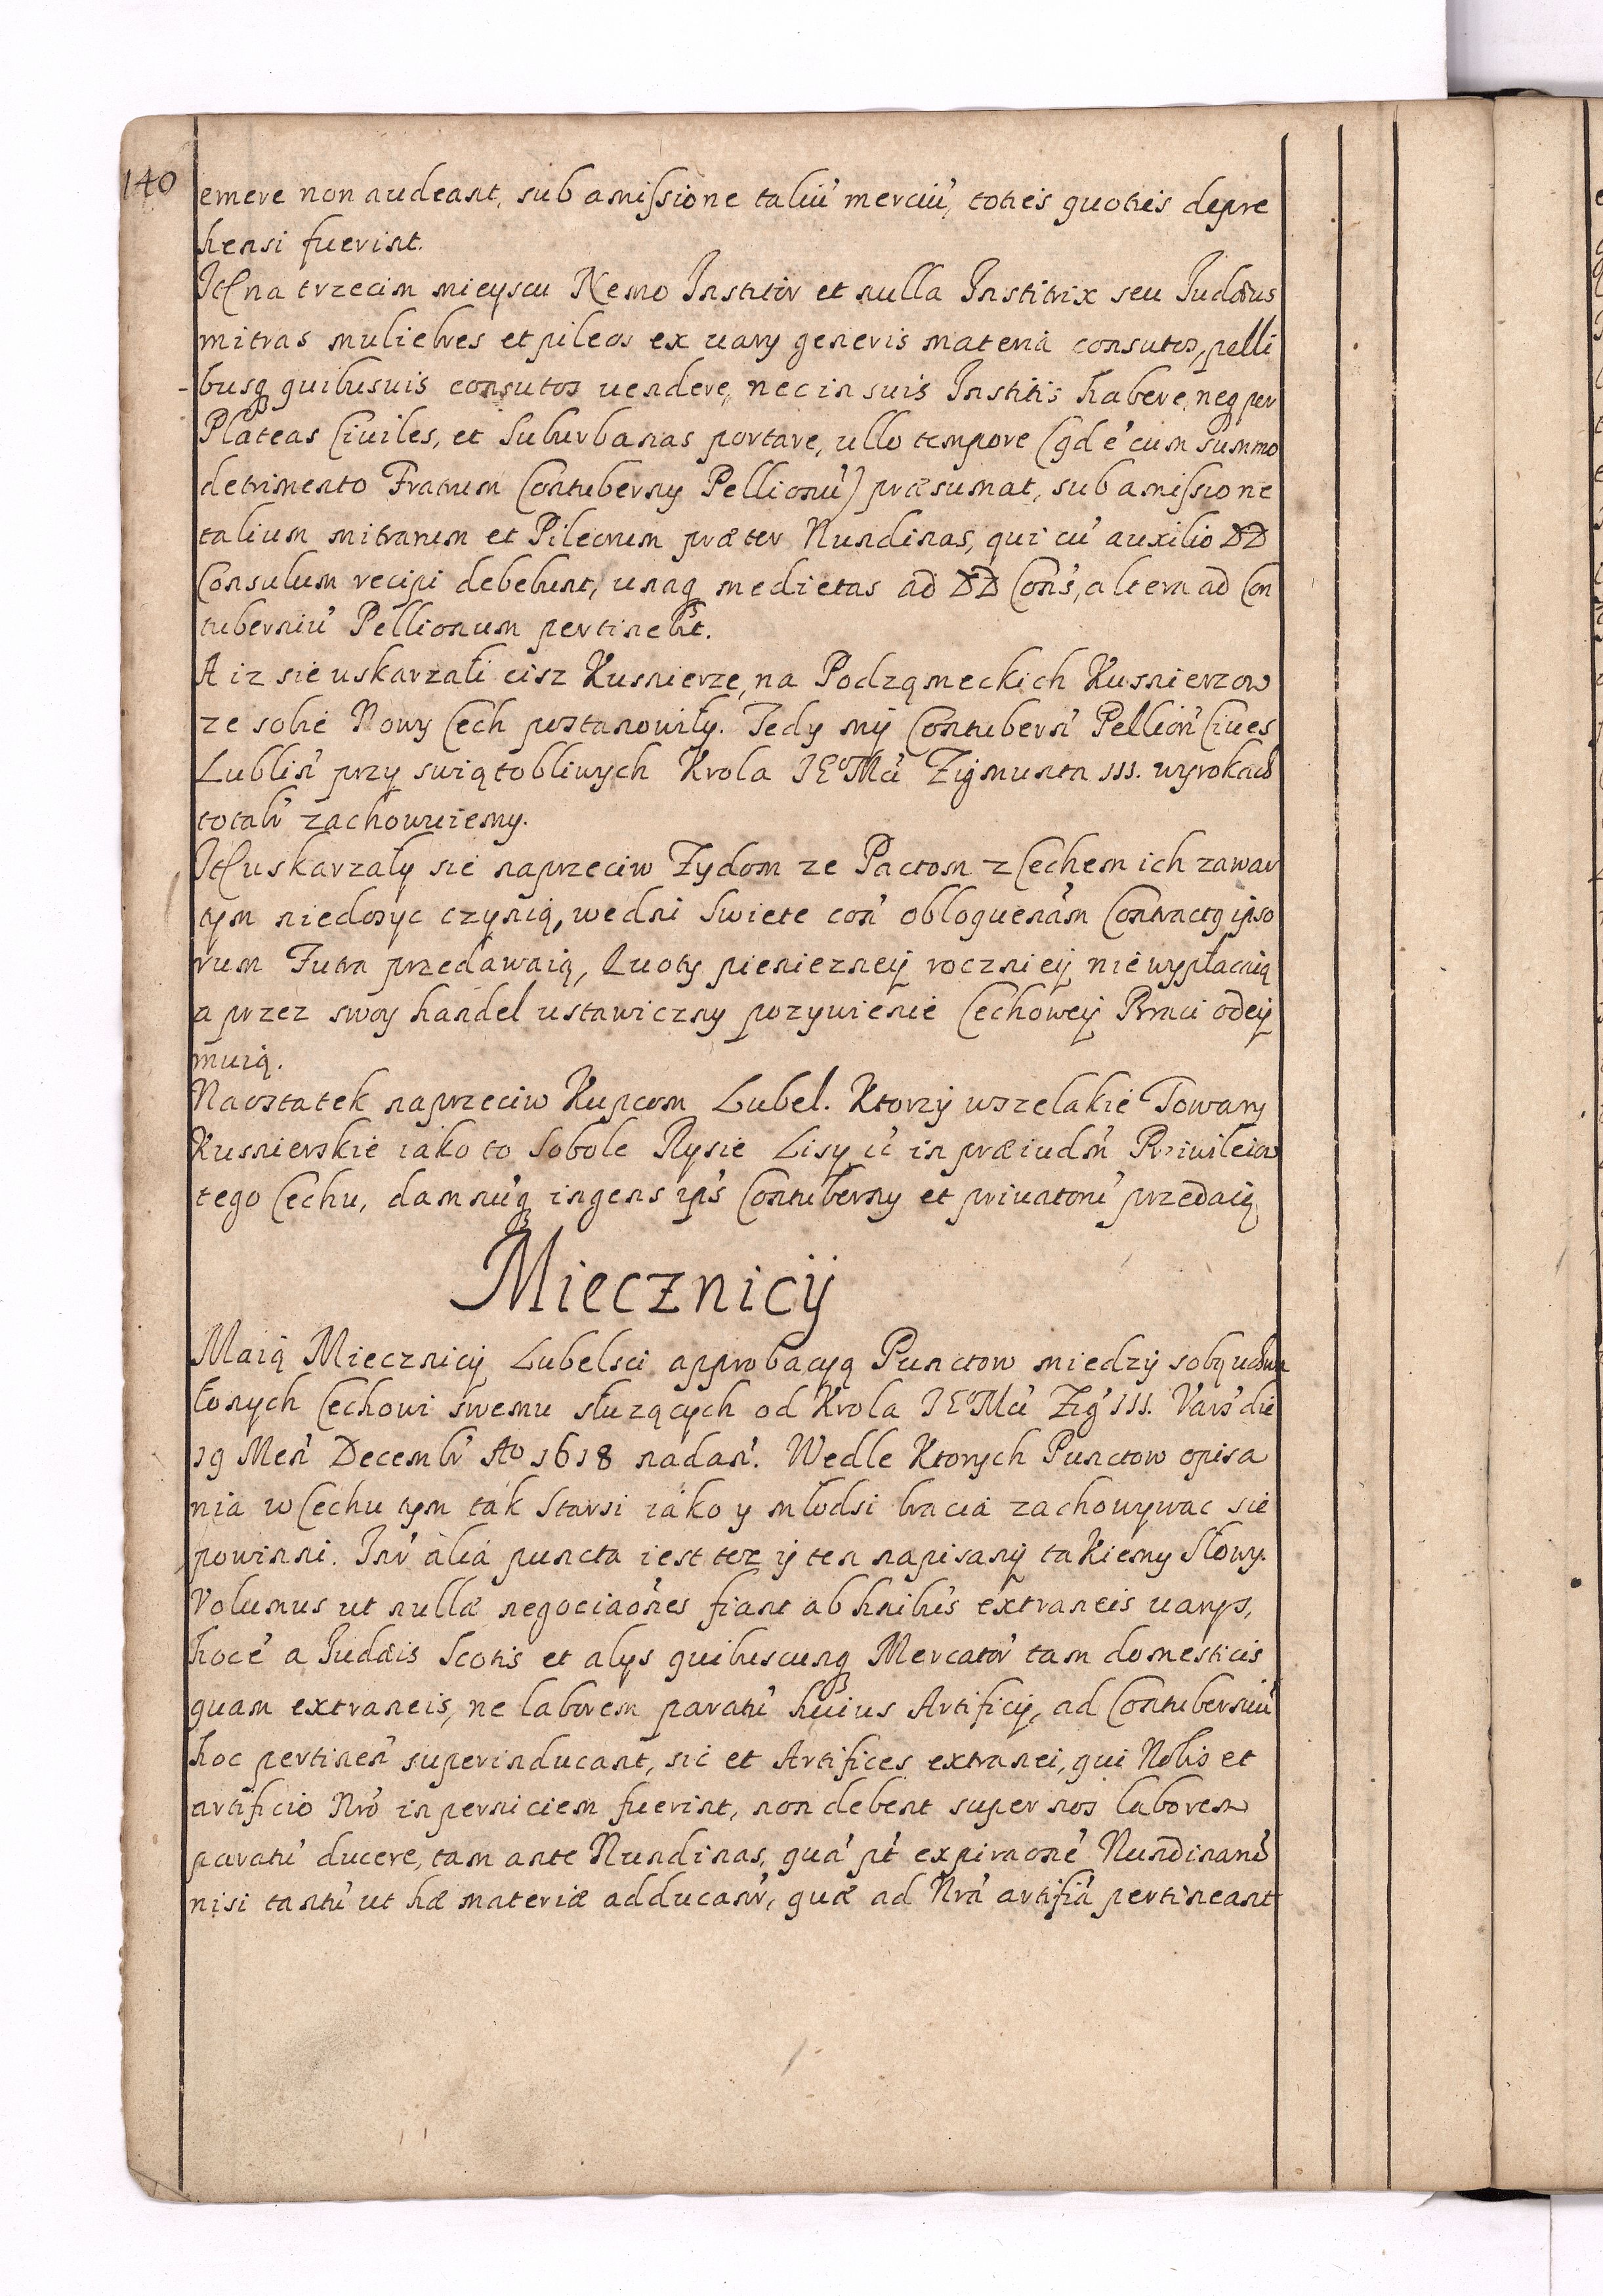 140
emere non audeant, sub amissione taliu' merciu', toties quoties depre
hensi fuerint.
Itē na trzecim mieyscu Nemo Institor et nulla Institrix seu Judæus
mitras muliebres et pileos ex uary generis materia consutos, pelli
busq quibusuis consutos uendere, nec in suis Institis habere, neq per
Plateas Ciuiles, et Suburbanas portare, ullo tempore (qd e' cum summo
detrimento Fratrum Contuberny Pellionu') præsumat, sub amissione
talium mitrarum et Pileorum præter Nundinas, qui cu' auxilio DD
Consulum recipi debebunt, unaq medietas ad DD Cons', altera ad Con
tuberniu' Pellionum pertinebt.
A iz sie uskarzali cisz Kusnierze, na Podząmeckich Kusnierzow
ze sobie Nowy Cech postanowiły. Tedy mÿ Contubern' Pellion' Ciues
Lublin' przy swiątobliwych Krola JE°Mci Zigmunta III. wyrokach
totalr' zachowuiemy.
Itē uskarzały sie naprzeciw Zydom ze Pactom z Cechem ich zawar
tym niedosyc czynią, wedni Swiete con' obloquenam Contractq ipso
rum Futra przedawaią, Quoty pienieznej roczniej nie wypłacaią
a przez swoy handel ustawiczny pozywienie Cechowey Braci odey
muią.
Naostatek naprzeciw Kupcom Lubel. Ktorzy wszelakie Towary
Kusnierskie iako to Sobole Rysie Lisy ic' in præiudm' Priuileiow
tego Cechu, damnu'q ingens ips' Contuberny et priuatoru' przedaią
Miecznicÿ
Maią Miecznicy Lubelsci approbacyą Punctow miedzy sobą uchwa
lonych Cechowi swemu słuzących od Krola JE°Mci Zig' III. Vars' die
19 Men' Decembr' A° 1618 nadan'. Wedle Ktorych Punctow opisa
nia w Cechu tym tak Starsi iako y młodsi bracia zachowywac sie
powinni. Intr' alia puncta iest tez y ten napisany takiemy Słowy.
Volumus ut nullæ negociaones fiant ab hnibus extraneis uarys,
hoc e' a Judæis Scotis et alys quibuscunq Mercator' tam domesticis
quam extraneis, ne laborem paratu' huius Artificy, ad Contuberniu'
hoc pertinen' superinducant, sic et Artifices extranei, qui Nobis et
artificio Nro' in perniciem fuerint, non debent super nos laborem
paratu' ducere, tam ante Nundinas, qua' pt' expiraone' Nundinaru'
nisi tantu' ut hæ materiæ adducantr', quæ ad Nra' artifia' pertineant